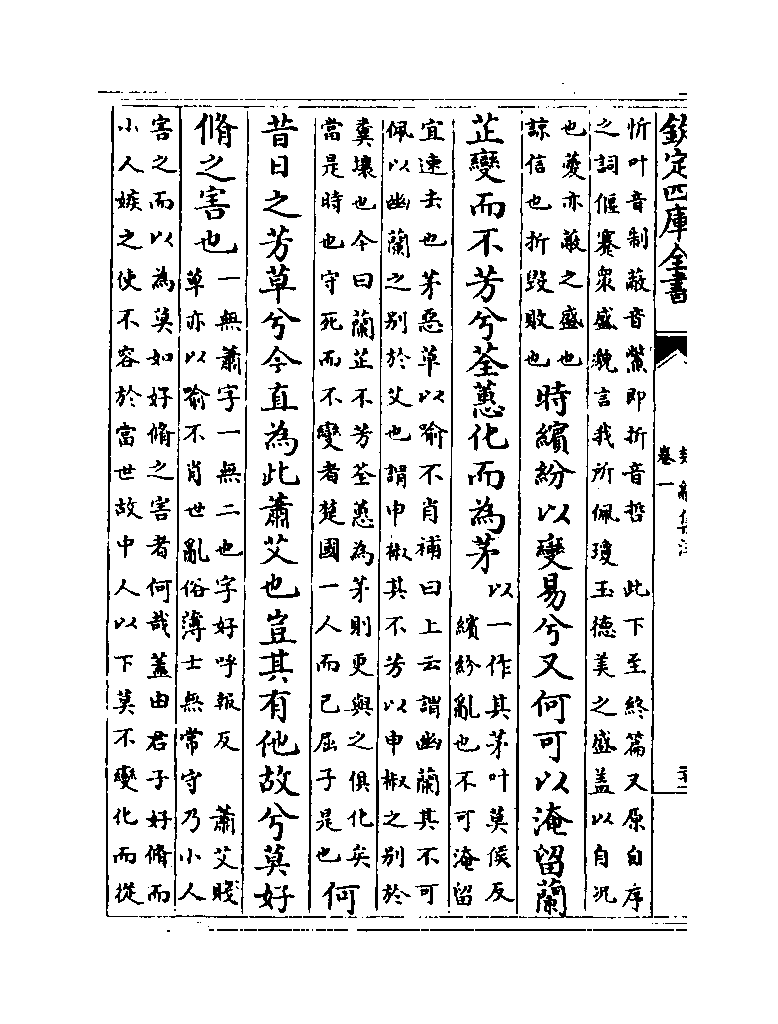 欽定四庫全書
卷一
忻叶音制蔽音鷩即折音哲　此下至終篇又原自序
之詞偃蹇衆盛貌言我所佩瓊玉德美之盛蓋以自況
也薆亦蔽之盛也
諒信也折毀敗也
時繽紛以變易兮又何可以淹留蘭
芷變而不芳兮荃蕙化而為茅
以一作其茅叶莫侯反
繽紛亂也不可淹留
宜速去也茅惡草以喻不肖補曰上云謂幽蘭其不可
佩以幽蘭之别於艾也謂申椒其不芳以申椒之别於
糞壤也今曰蘭芷不芳荃蕙為茅則更與之俱化矣
當是時也守死而不變者楚國一人而已屈子是也
何
昔日之芳草兮今直為此蕭艾也豈其有他故兮莫好
脩之害也
一無蕭字一無二也字好呼報反　蕭艾賤
草亦以喻不肖世亂俗薄士無常守乃小人
害之而以為莫如好脩之害者何哉蓋由君子好脩而
小人嫉之使不容於當世故中人以下莫不變化而從